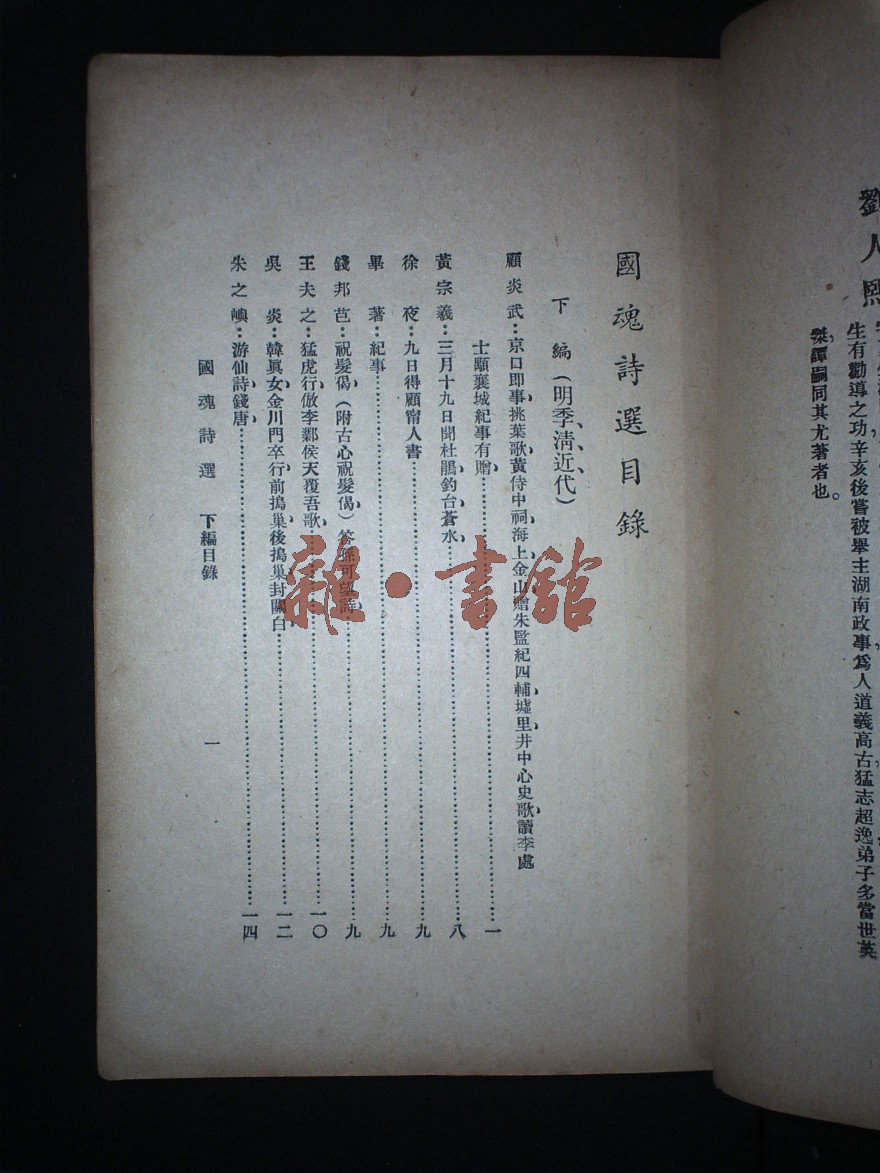 劉人熙
生有勸導之功辛亥後嘗被舉主湖南政事爲人道義高古猛志超逸弟子多當世英
桀譚嗣同其尤著者也。
國魂詩選目錄
下編(明季、清、近代)
顧炎武：京口即事、挑葉歌、黃侍中祠、海上、金山、贈朱監紀四輔、墟里、井中心史歌、讀李處
士顒襄城紀事有贈……一
黃宗羲：三月十九日聞杜鵑、釣台、蒼水……八
徐夜：九日得顧甯人書……九
畢著：紀事……九
錢邦芑：祝髮偈、(附古心祝髮偈)答孫可望詩……九
王夫之：猛虎行、倣李鄴侯天覆吾歌……一〇
吳炎：韓貞女、金川門卒行、前搗巢、後搗巢、封關白……一二
朱之嶼：游仙詩、錢唐……一四
國魂詩選 下編目錄
一
雜·書館